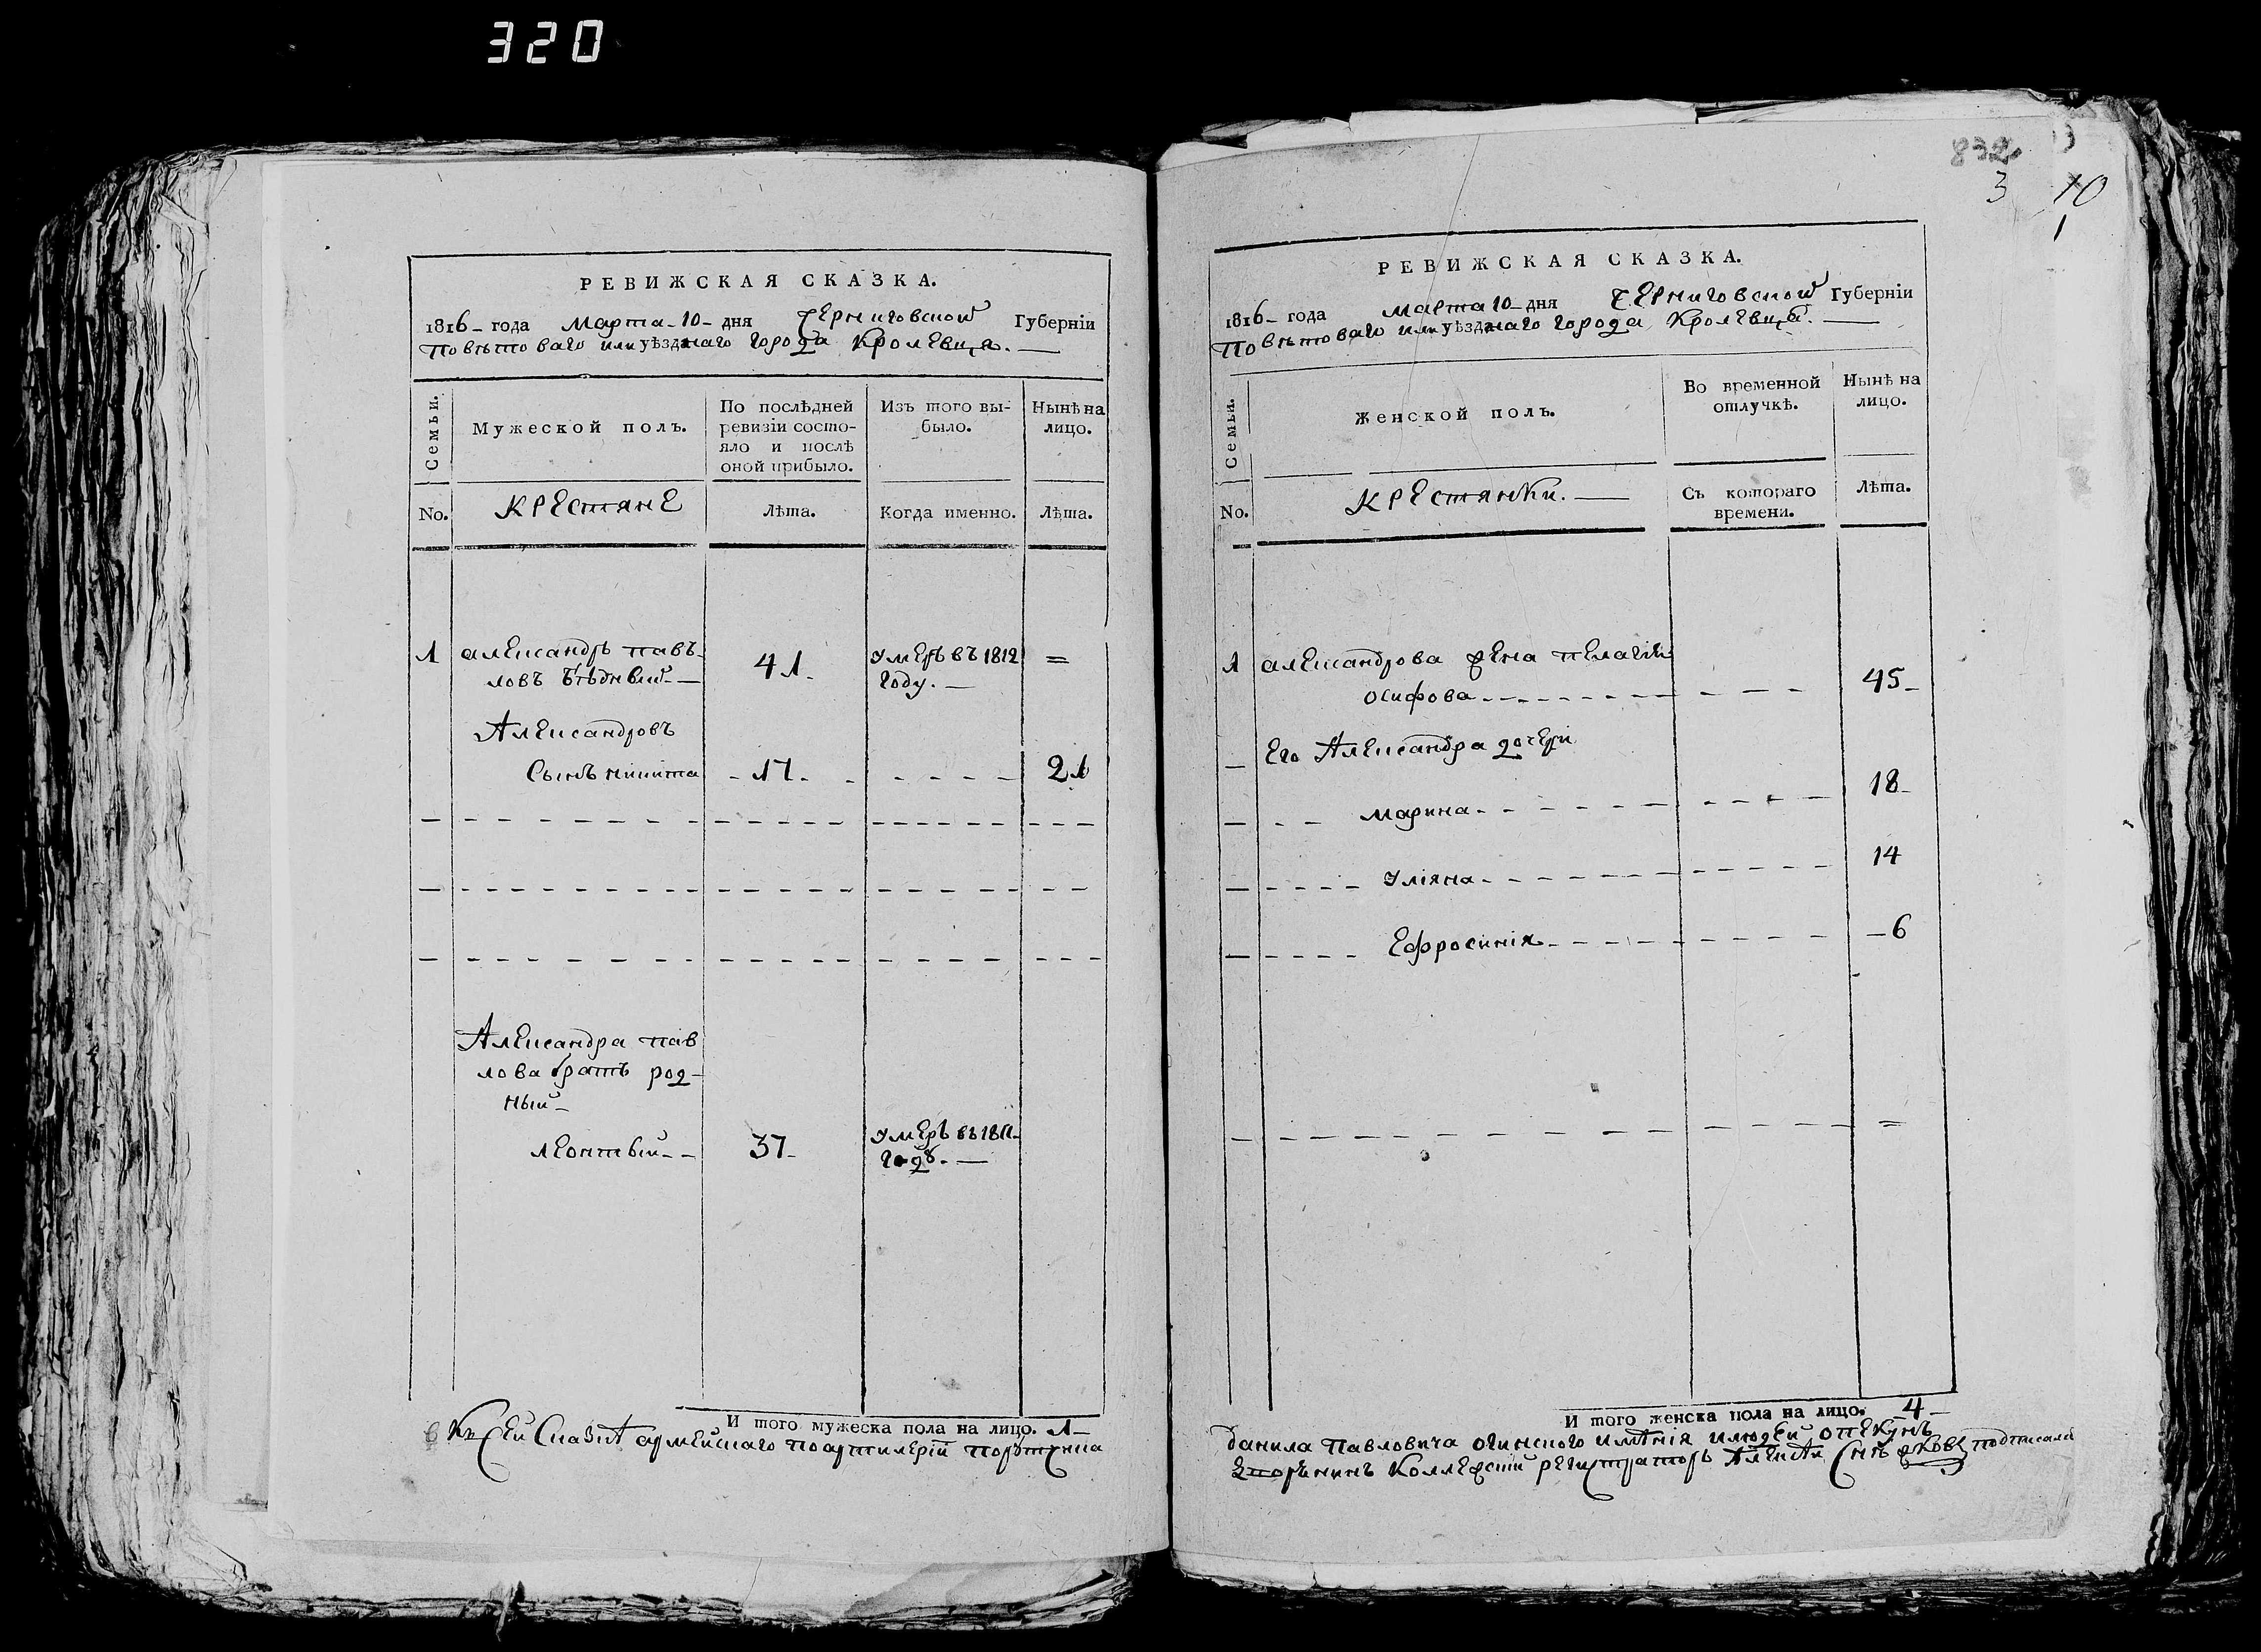 320
РЕВИЖСКАЯ СКАЗКА.
1816 – года марта – 10 – дня Черниговской Губерніи
Повѣтоваго или уѣзднаго города Кролевца. —
Семьи.
Мужеской полъ.
По послѣдней
ревизіи состо-
яло и послѣ
оной прибыло.
Изъ того вы-
было.
Нынѣ на
лицо.
No.
Крестяне
Лѣта.
Когда именно.
Лѣта.
1 александръ павъ-
ловъ Бѣдный — 41. умеръ въ 1812 =
году. —
Александровъ
Сынъ никита - 17 - 21
Александра пав
лова братъ род-
ный -
леонтый - - 37 - умеръ въ 1811
годѣ. —
И того мужеска пола на лицо. 1 –
К сей сказкѣ армейскаго поартилерій порутчика
832
3 10
1
РЕВИЖСКАЯ СКАЗКА.
1816 – года марта 10 – дня Черниговской Губерніи
Повѣтоваго или уѣзднаго города Кролевца. —
Семьи.
Женской полъ.
Во временной
отлучкѣ.
Нынѣ на
лицо.
No.
Крестянки. —
Съ котораго
времени.
Лѣта.
1 александрова жена пелагія
осифова 45 –
Его Александра дочери
марина 18 –
уліяна 14
Ефросинія – 6
=
И того женска пола на лицо. 4 –
данила Павловича огинского имѣнія и людей опекунъ
Коллежскій регистраторъ Алексѣй подписалъ